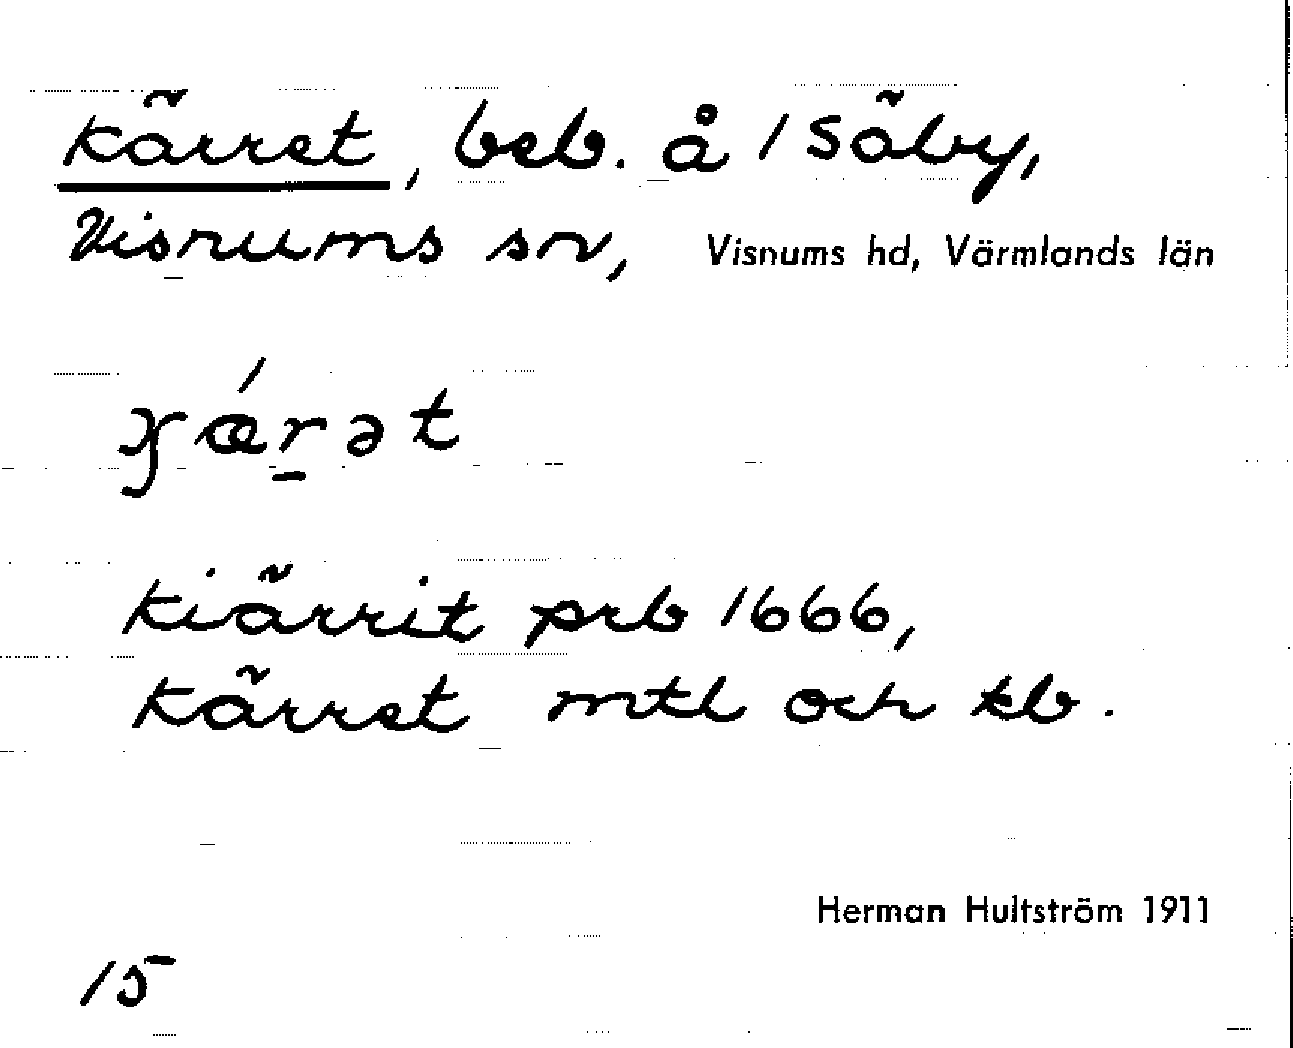 Kärret, beb. å 1 Säby,
Visnums sn, Visnums hd, Värmlands län
ɣǽr̠ət
Kiärrit prb 1666,
Kärret mtl och kb.
Herman Hultström 1911
15